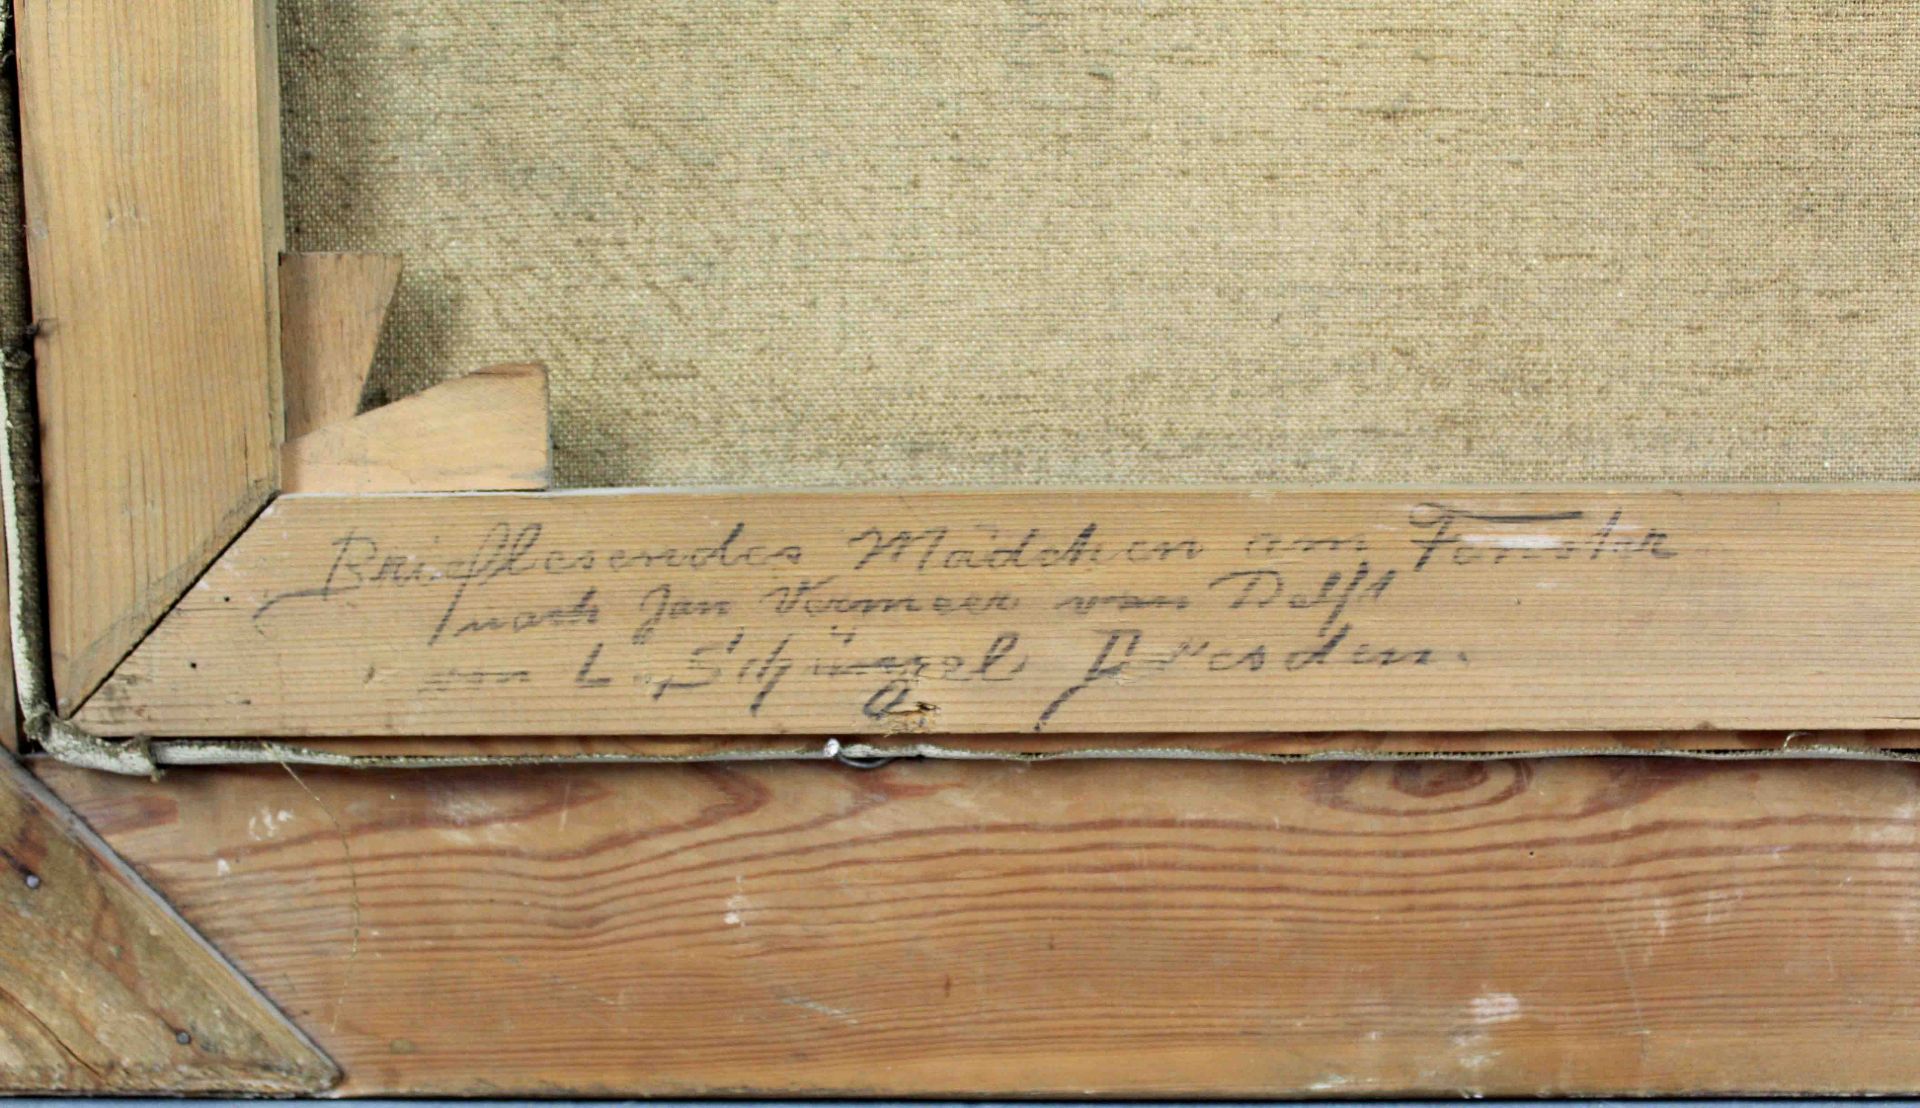 Brieflesendes Mädchen am Fenster
nach Jan Vermeer van Delft
von L. Dresden.